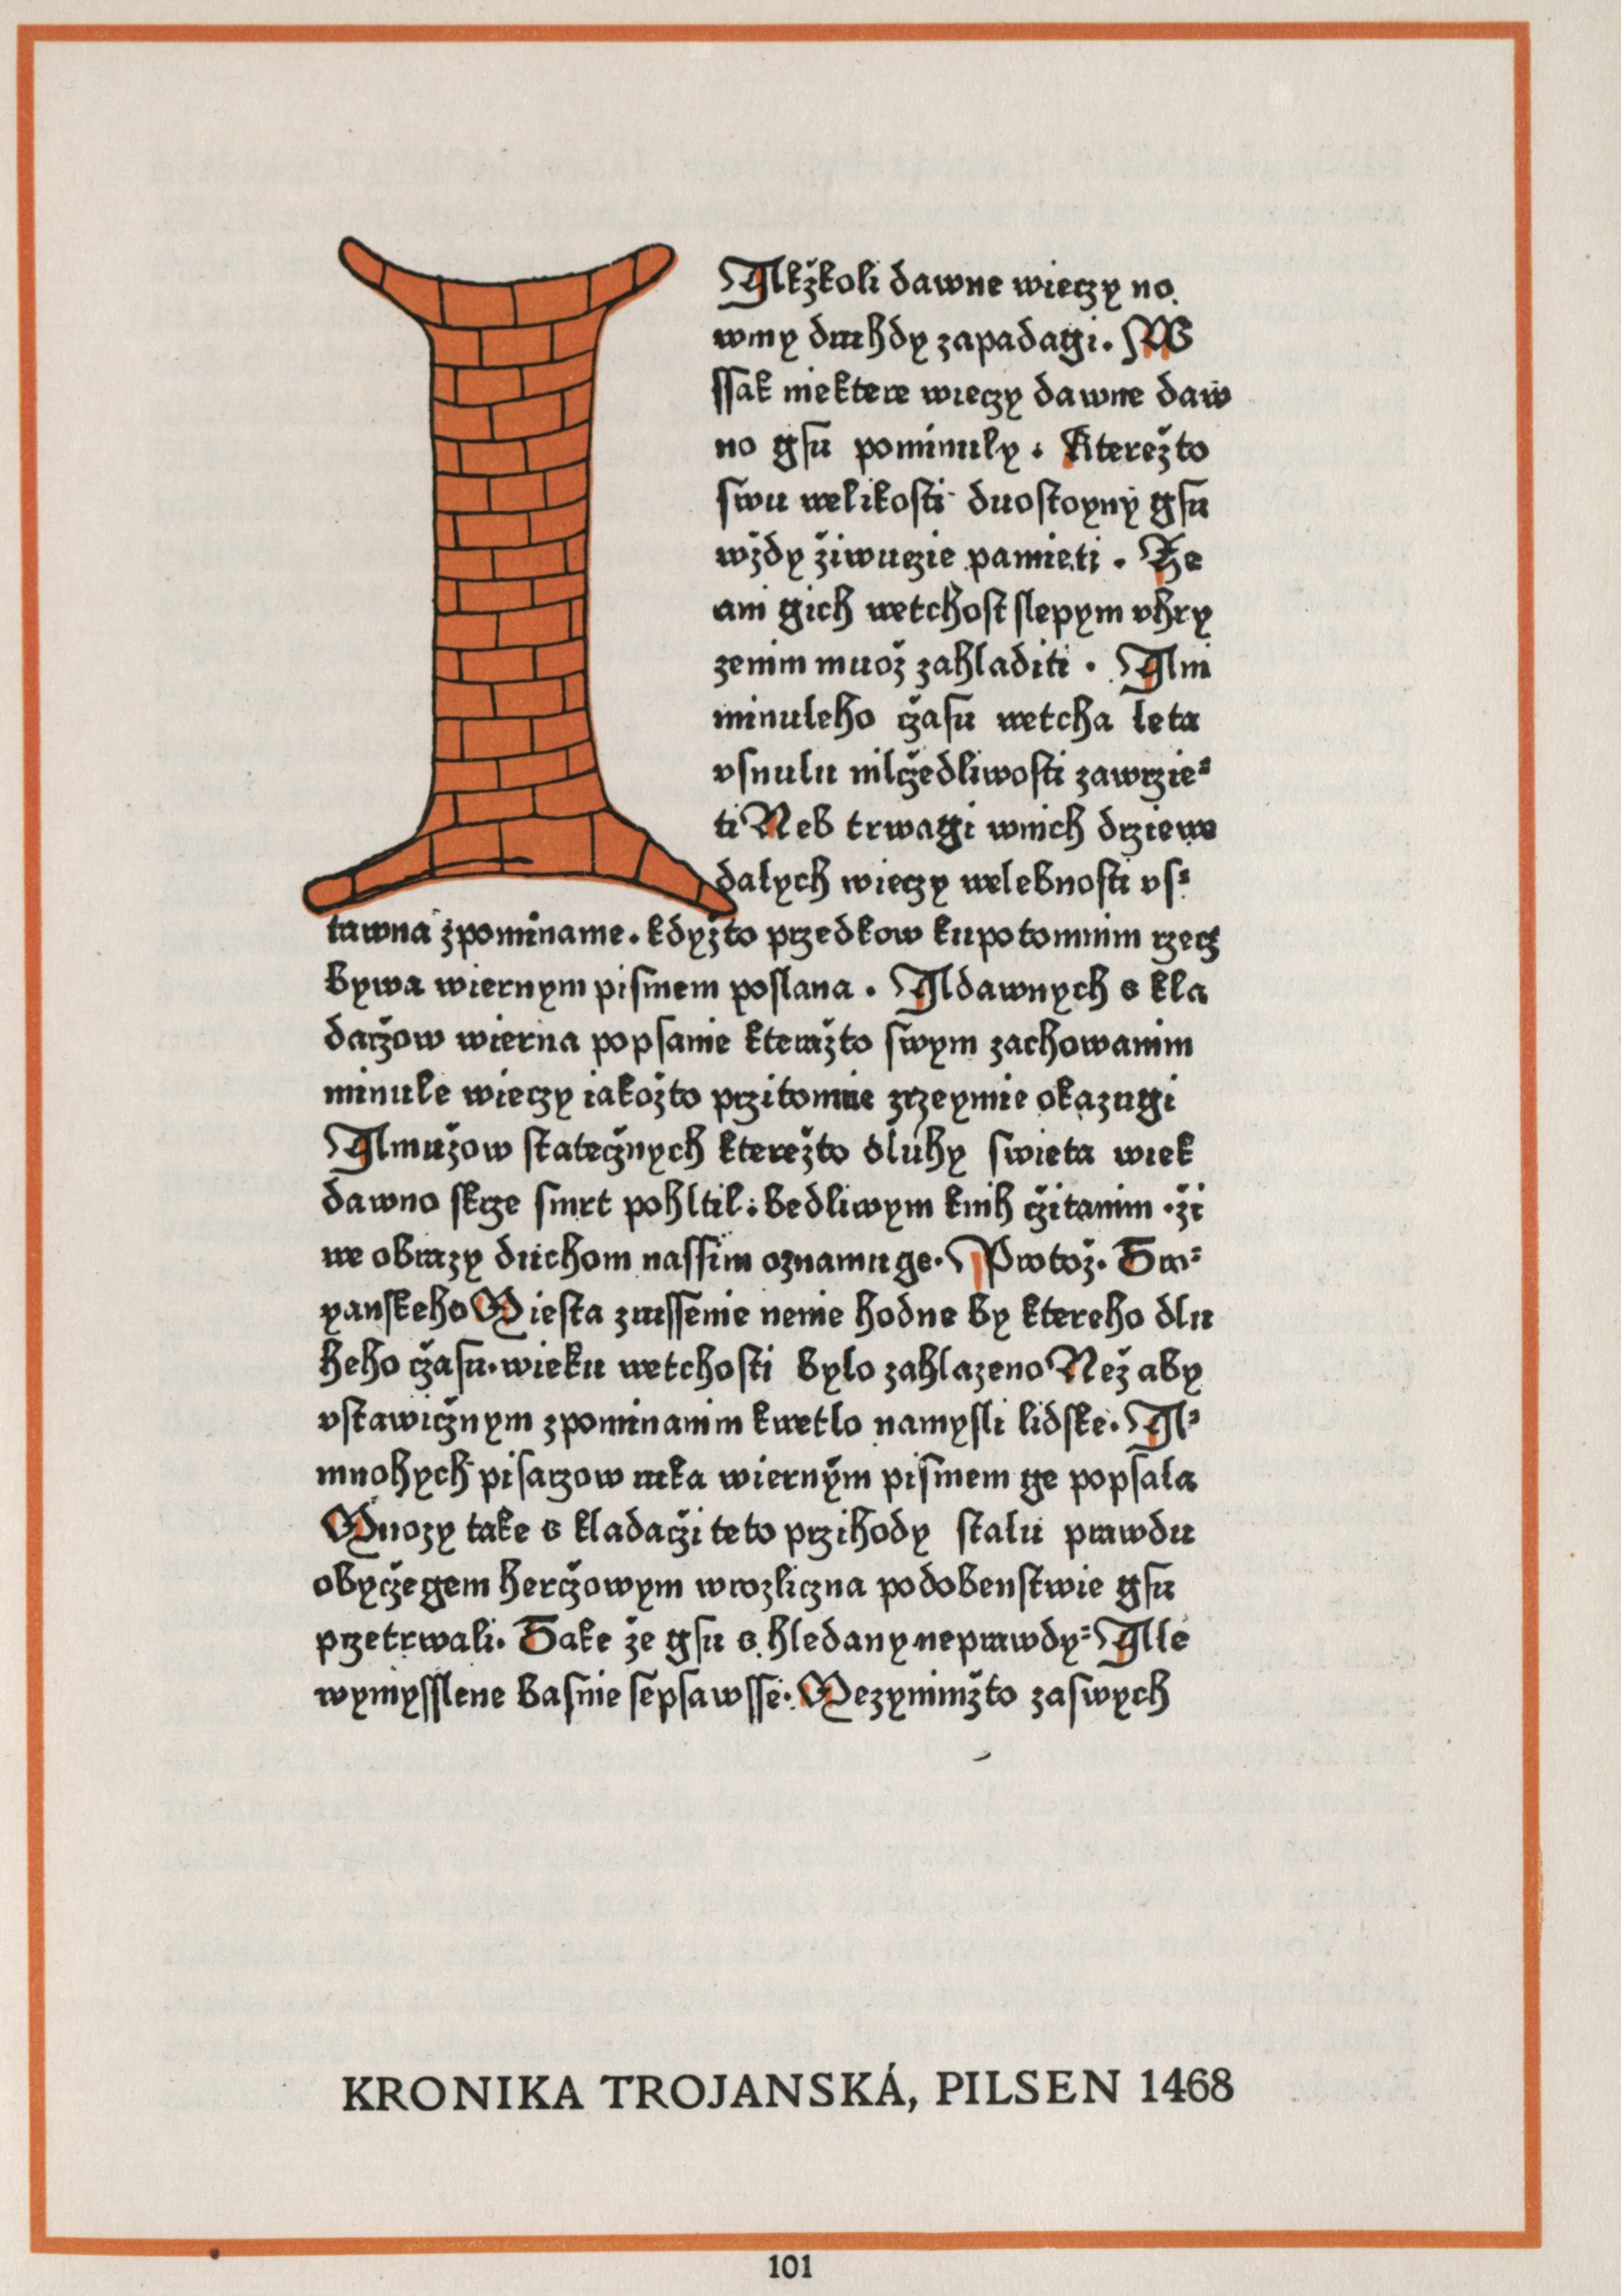 I
Akžkoli dawne wieczy no
wmy druhdy zapadagi. W
ssak niektere wieczy dawne daw
no gsu pominuly. Kterežto
swu welikosti duostoyny gsu
wždy žiwuczie pamieti. Že
ani gich wetchost slepym vhry
zenim muož zahladiti. Ani
minuleho čzasu wetcha leta
vsnulu nilčzedliwosti zawrzie⸗
ti Neb trwagi wnich drziewe
dalych wieczy welebnosti vs⸗
tawna zpominame. kdyžto przedkow kupotomnim rzecz
bywa wiernym pismem poslana. Adawnych s kla
dačzow wierna popsanie kteražto swym zachowanim
minule wieczy iakožto przitomne zrzeymie okazugi
Amužow statečznych kterežto dluhy swieta wiek
dawno skrze smrt pohltil: bedliwym knih čzitanim .ži
we obrazy duchom nassim oznamuge. Protož. Tro⸗
yanskeho Miesta zrussenie nenie hodne by ktereho dlu
heho čzasu. wieku wetchosti bylo zahlazeno Než aby
vstawičznym zpominanim kwetlo namysli lidske. A⸗
mnohych pisarzow ruka wiernym pismem ge popsala
Mnozy take s kladačzi teto przihody stalu prawdu
obyčzegem herčzowym wrozliczna podobenstwie gsu
przetrwali. Take že gsu s hledany neprawdy⸗ Ale
wymysslene basnie sepsawsse. Mezynimžto zaswych
KRONIKA TROJANSKÁ, PILSEN 1468
101